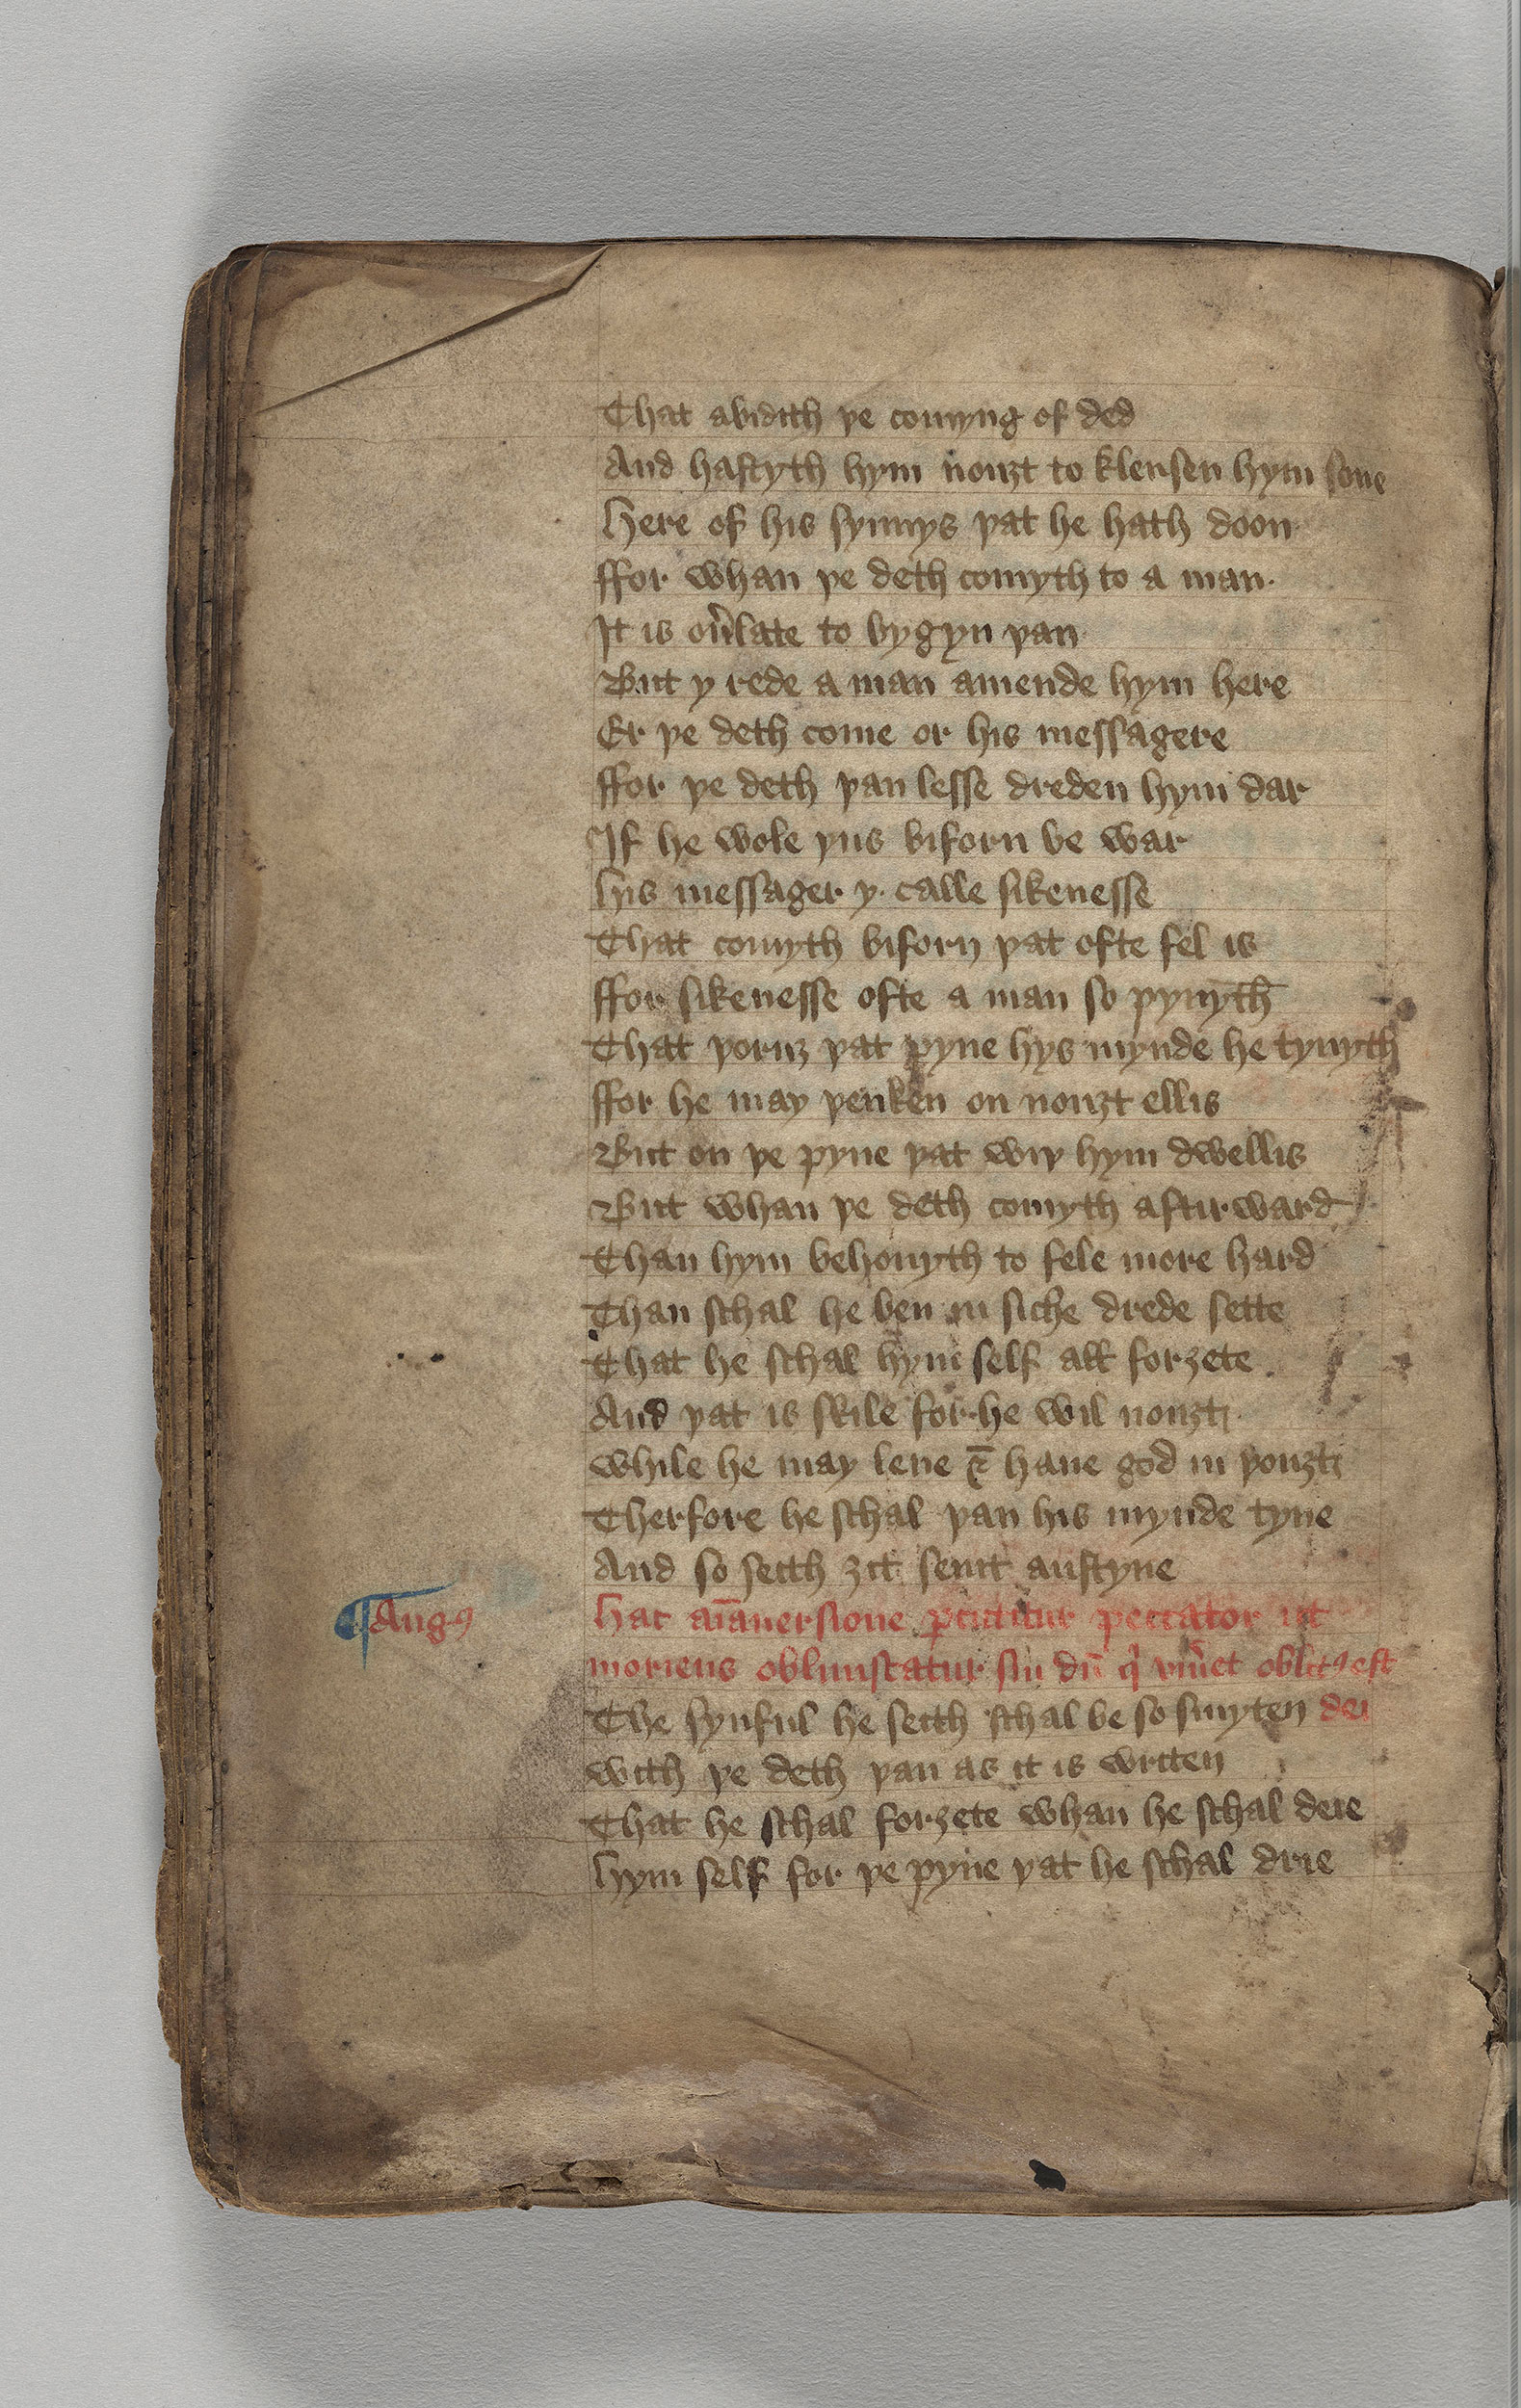 That abidith þe comyng of ded
And hastyth hym nouȝt to klensen hym sone
Here of his synnys þat he hath doon
ffor whan þe deth comyth to a man.
It is ou̾late to bygyn þan
But y rede a man amende hym here
Er þe deth come or his messagere
ffor þe deth þan lesse dreden hym dar
If he wole þus biforn be war
His messager y. calle sikenesse
That comyth biforn þat ofte fel is
ffor sikenesse ofte a man so pynyth
That þoruȝ þat pyne hys mynde he tynyth
ffor he may þenken on nouȝt ellis
But on þe pyne þat wiþ hym dwellis
But whan þe deth comyth aftirward
Than hym behouyth to fele more hard
Than schal he ben in siche drede sette
That he schal hym self all forȝete.
And þat is skile for he wil nouȝt
while he may leue & haue god in þouȝt
Therfore he schal þan his mynde tyne
And so seith ȝit seint austyne
¶ Augꝯ
Hac aīauersione ꝑcutitur peccator ut
moriens obliuiscatur sui dū q̇ viu̾et oblitꝯ est
The synful he seith schal be so smyten dei
with þe deth þan as it is writen
That he schal forȝete whan he schal deie
Hym self for þe pyne þat he schal drie